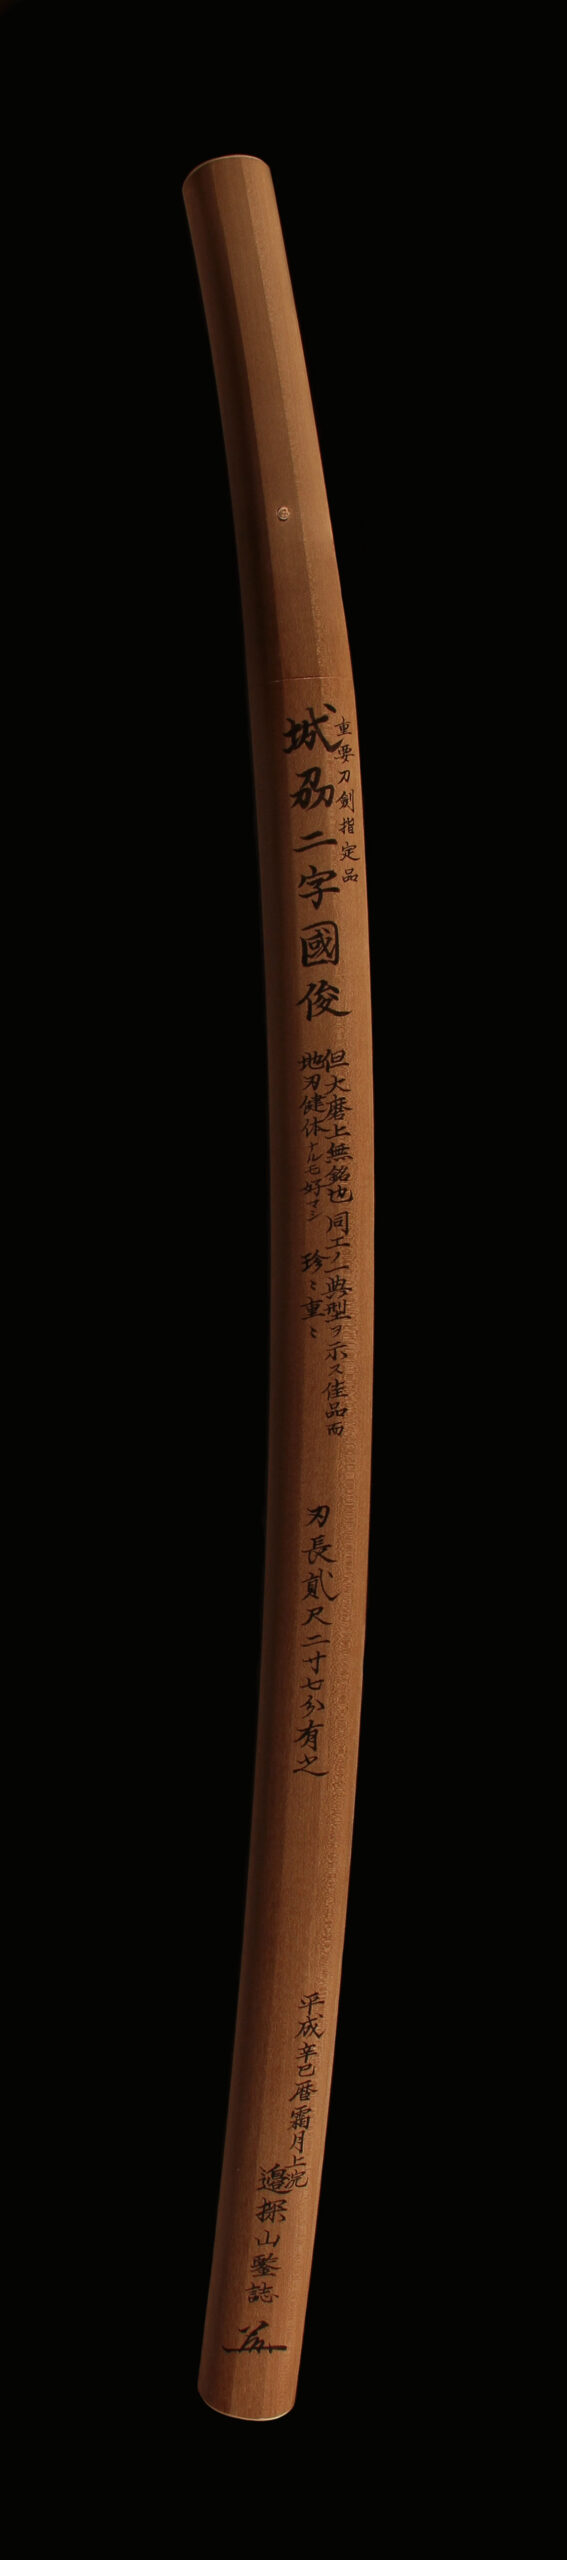 重要刀劍指定品
城刕二字國俊
但大磨上無銘也同工ノ一典型ヲ示ス佳品而
地刃健体ナルモ好マシ 珍〻重〻
刃長貳尺二寸七分有之
平成辛巳暦霜月上浣
邉探山鑒誌